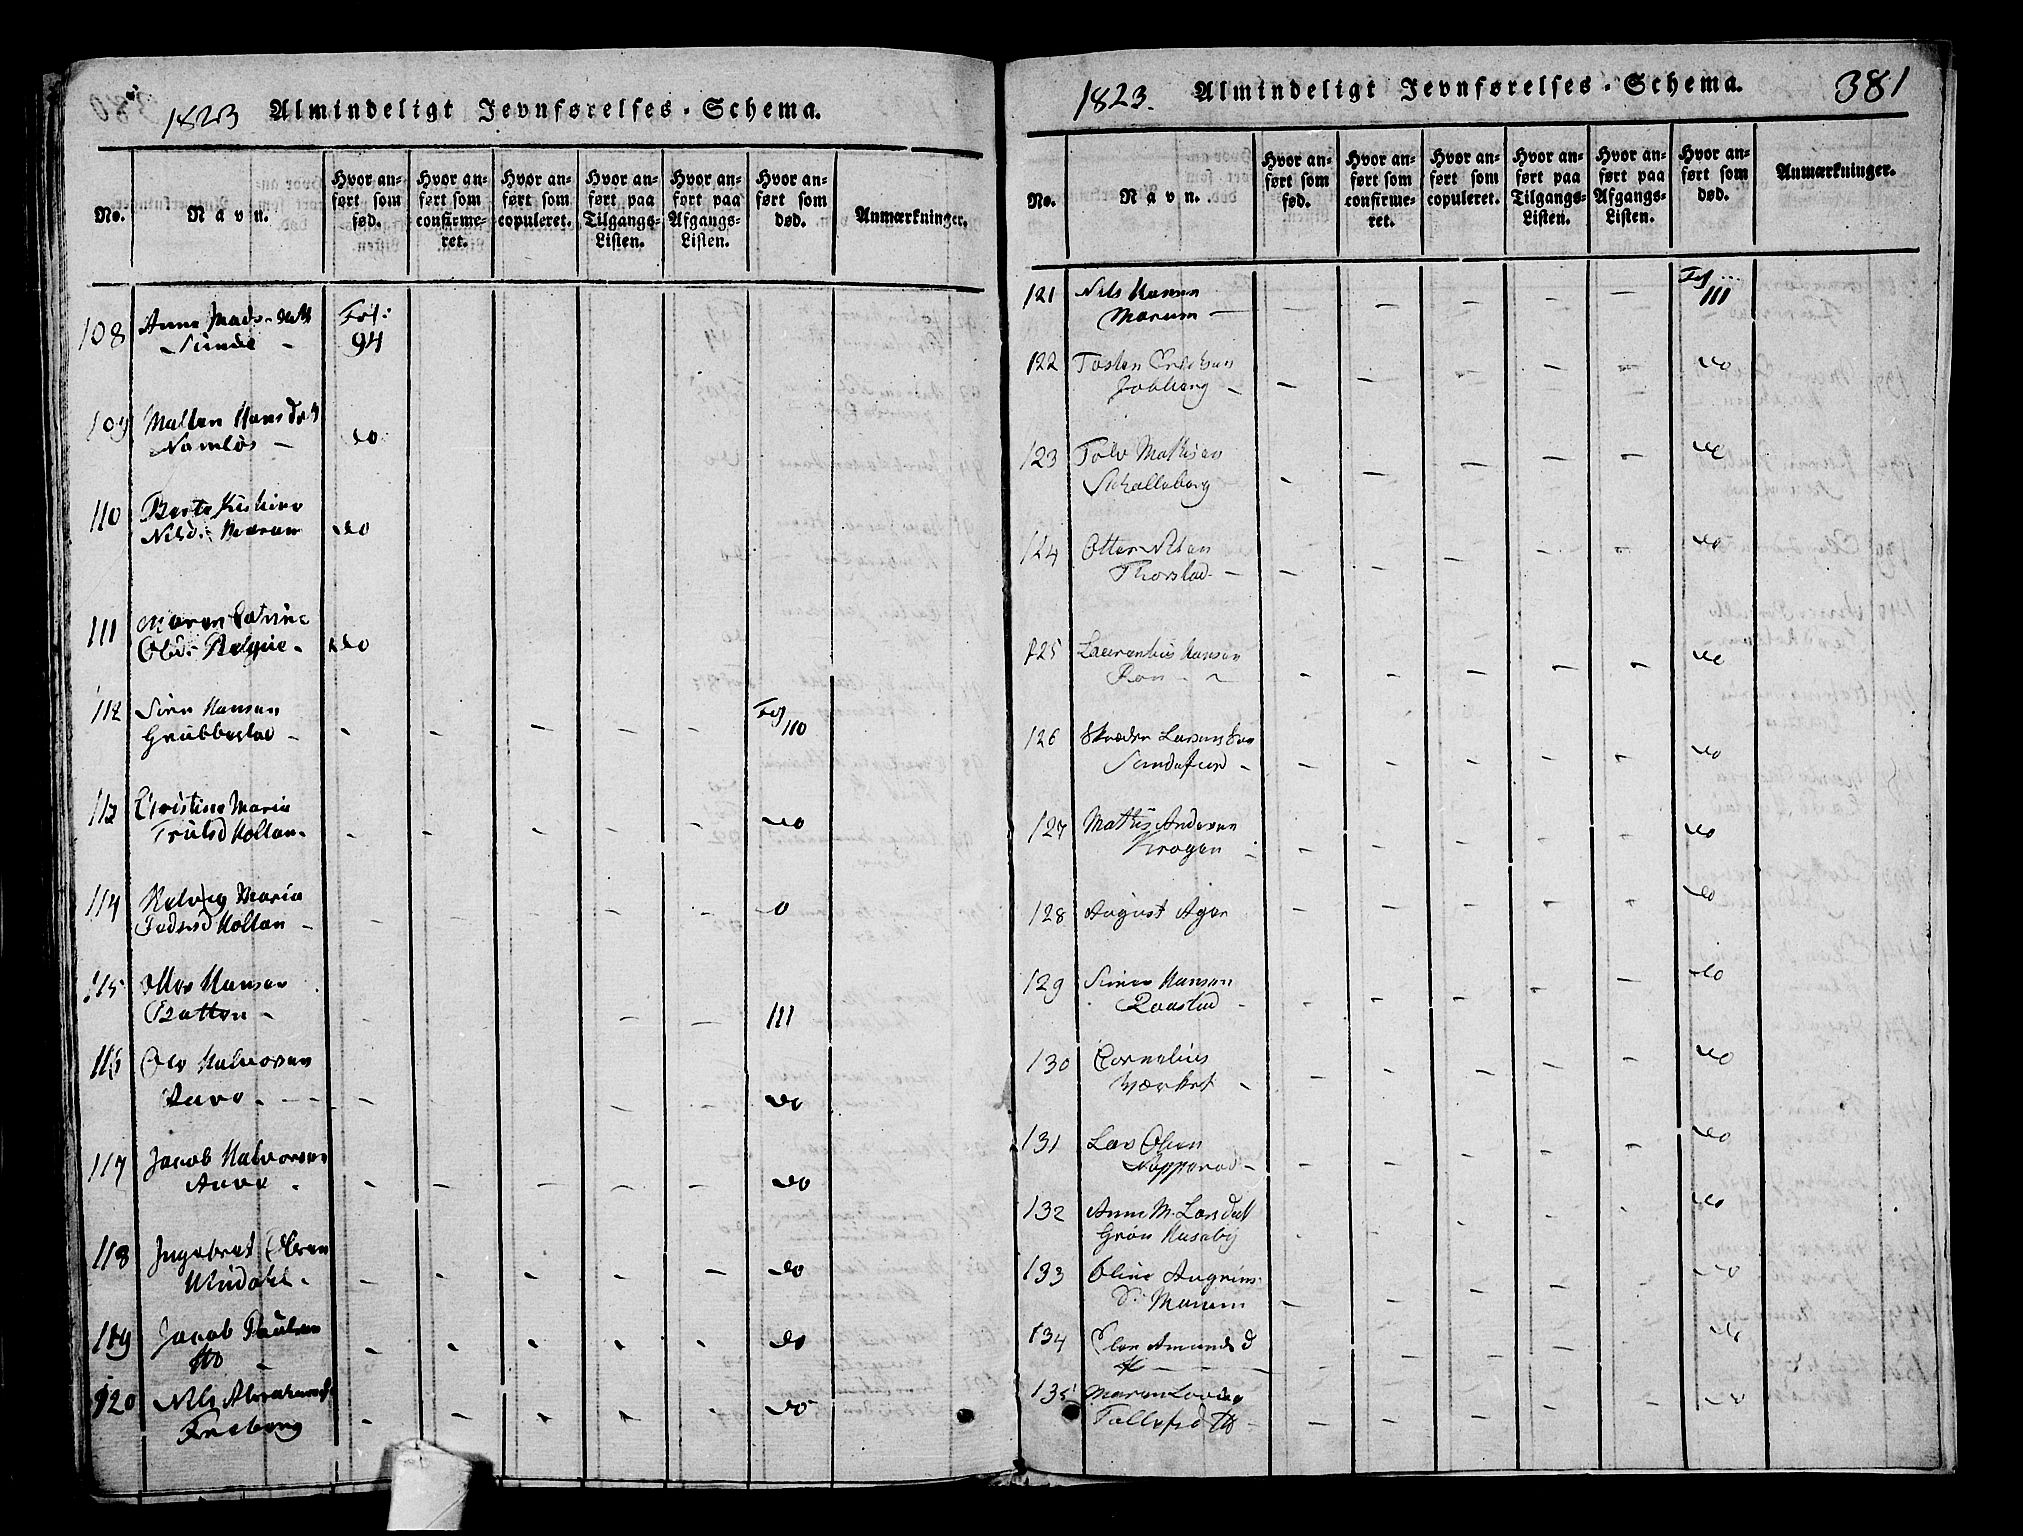 1823 Almindeligt Jevnførelses-Schema.
No. Navn. Hvor anført som fød. Hvor anført som confirmeret. Hvor anført som copuleret. Hvor anført paa Tilgangs-Listen. Hvor anført paa Afgangs-Listen. Hvor anført som død. Anmærkninger.
108 Anne Mads- Fol:
Sunde - 94
109 Malten Hansdat
Namløs - do
110 Berte Kistine
Nilsd: do
111 Maren Catrine
Olsd: do
112 Siver Hansen Fol
Grubbestad - 110
113 Christine Maria
Trulsd Holtan - do
114 Maria
Pedersd Holtan - do
115 Hansen
- 111
116 Ole Halvorsen
Aarø - do
117 Jacob Halvorsen
Aarø - do
118 Ingebret Olsen
Mindahl - do
119 Jacob Paulsen
do
120 Nils Abrahams
Freberg do
1823. Almindeligt Jevnførelses-Schema. 381
No. Navn. Hvor anført som fød. Hvor anført som confirmeret. Hvor anført som copuleret. Hvor anført paa Tilgangs-Listen. Hvor anført paa Afgangs-Listen. Hvor anført som død. Anmærkninger.
121 Nils Hansen Fol
Marum - 111
122 Tosten Ericksen do
Jobberg -
123 Tolv Mathisen do
Skalleberg
124 Otter Nilsen do
Thorstad -
125 Laurentius Hansen do
Ron -
126 Skræder Larsens
Sandefiord - do
127 Mathis Andersen do
Krogen
128 August Ager do
129 Simen Hansen do
Raastad -
130 Cornelius do
Værket -
131 Lars Olsen do
-
132 Anne M. Larsdatt do
Grøn Huseby
133 Oline Angrims do
D: Marum
134 Amunds d do
135 Maren Lovise do
Tollefsd